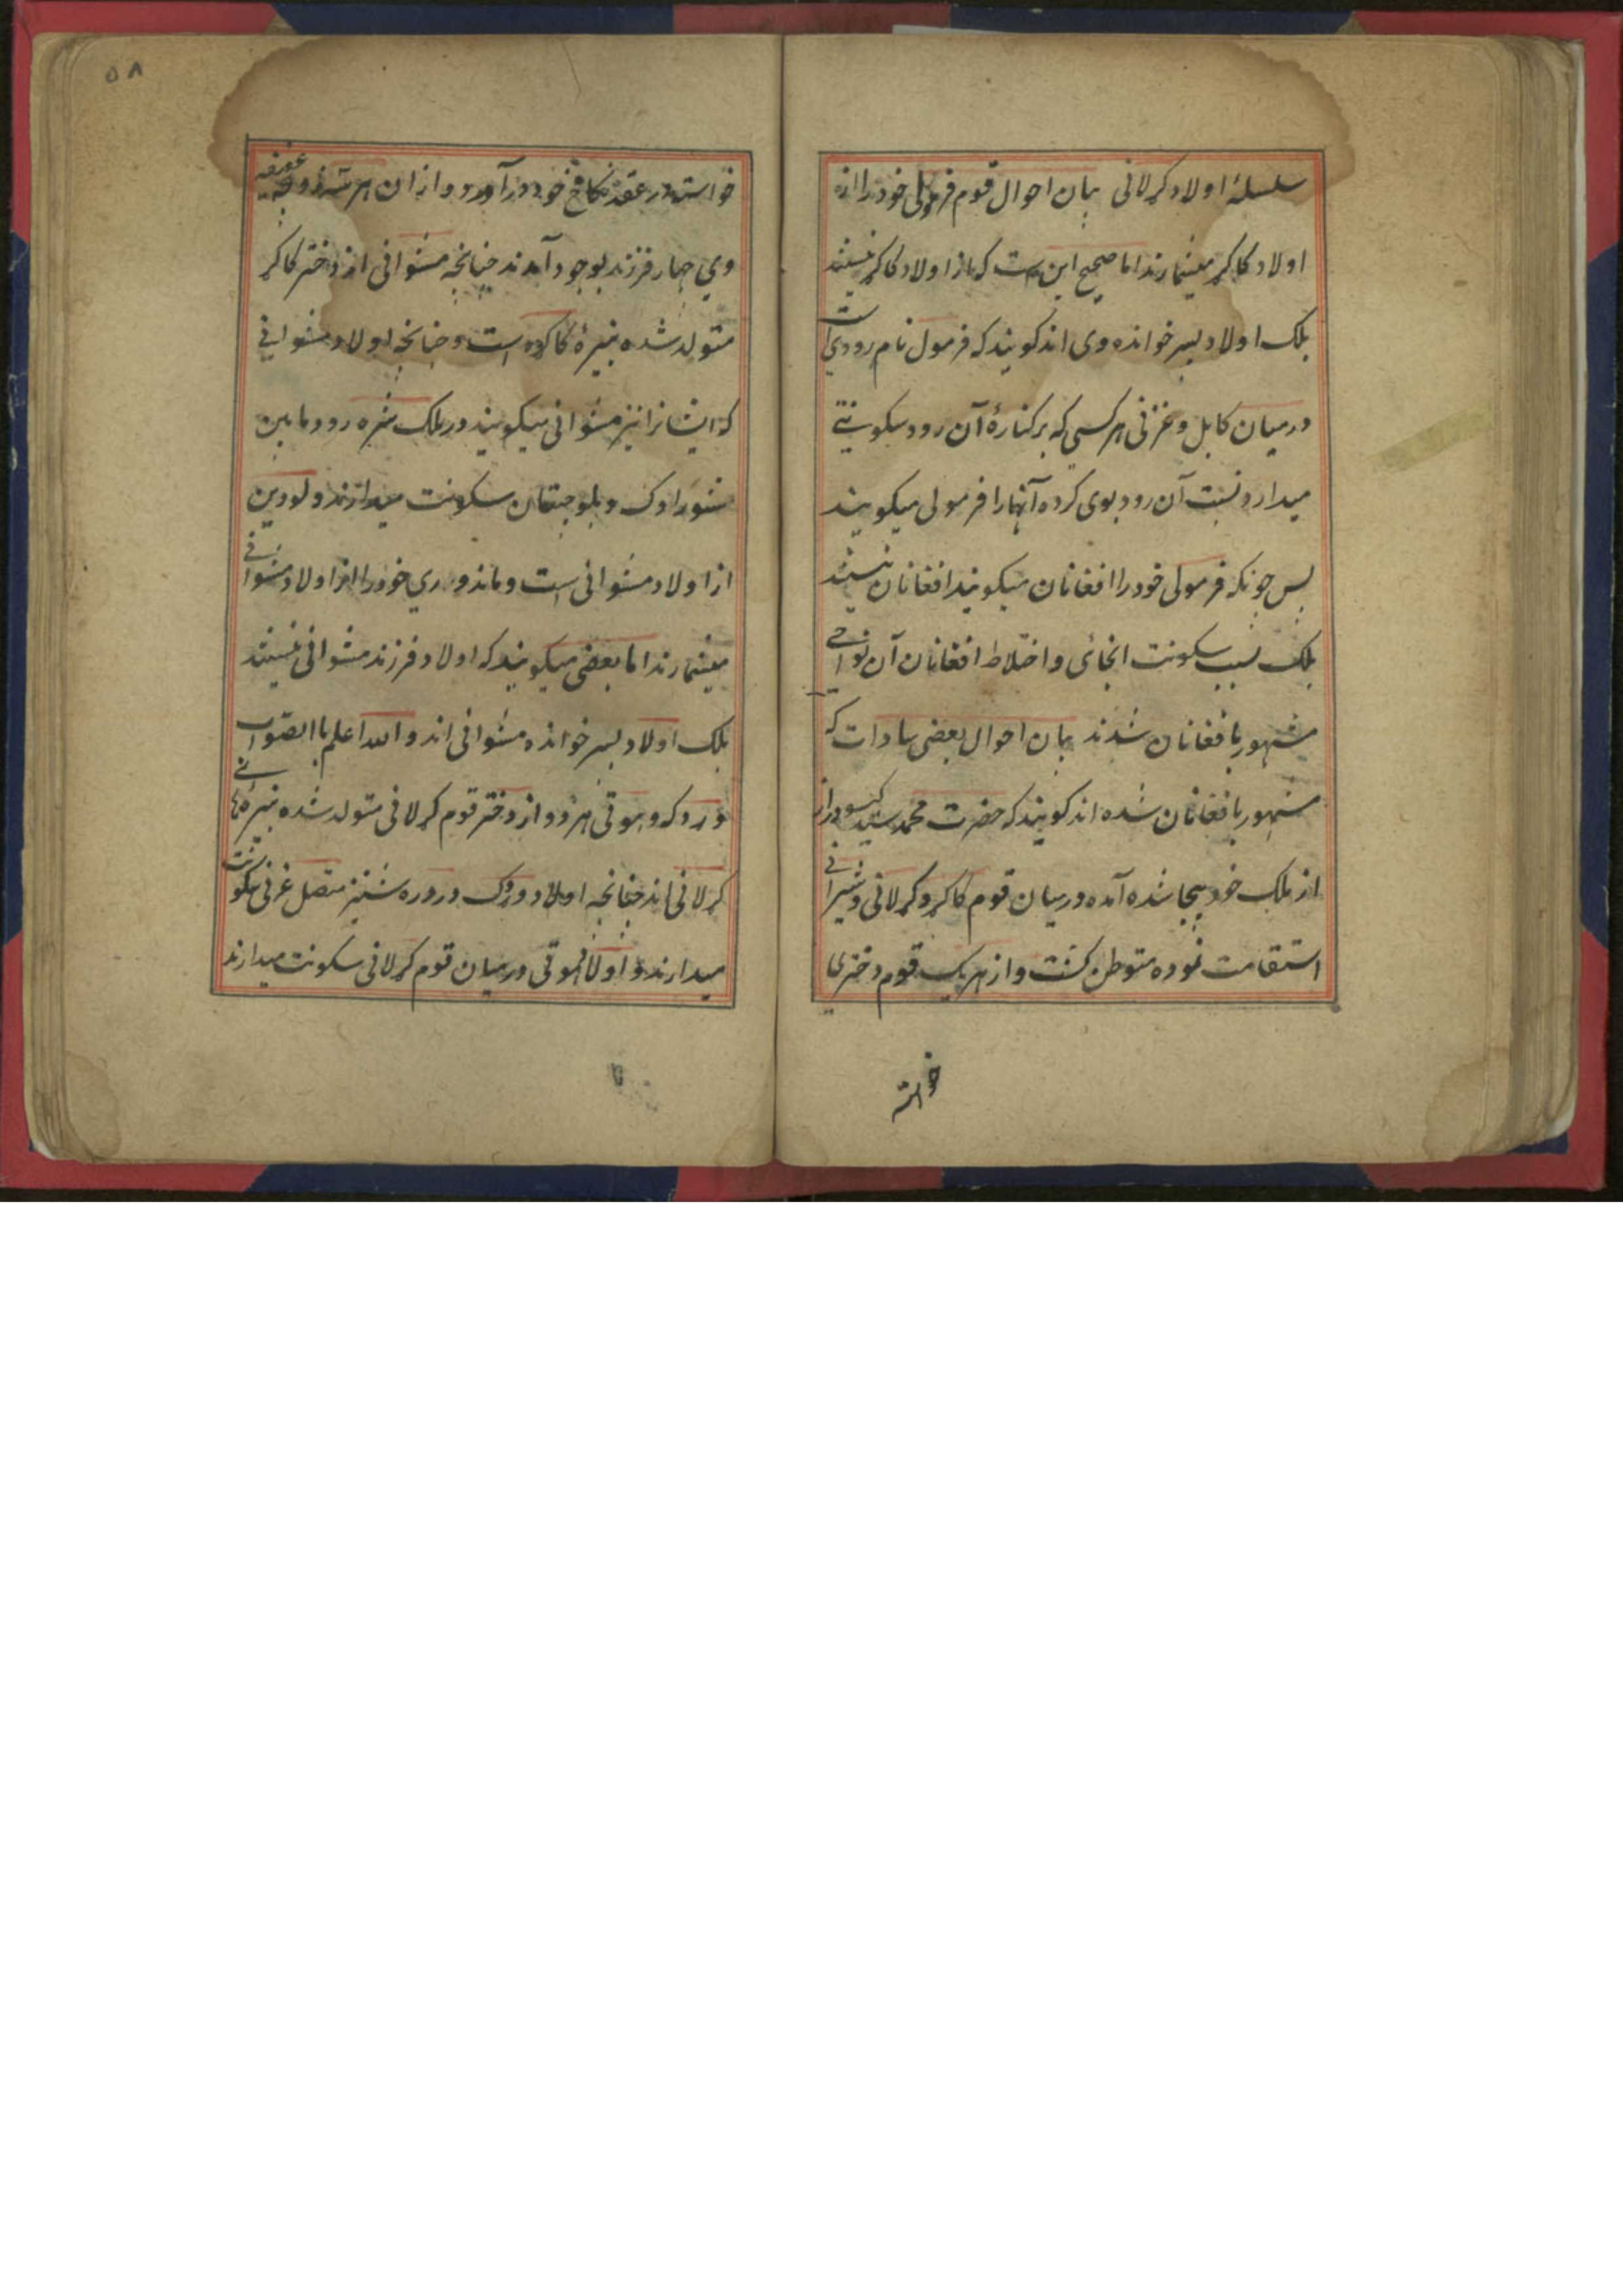 سلسلهٔ اولاد کرلانی بیان احوال قوم فرمولی خود را از
اولاد کاکر میشمارند اما صحیح این ست که از اولاد کاکر نیستند
بلک اولاد پسر خوانده وی اند کویند که فرمول نام رودی است
درمیان کابل و غزنی هر کسی که بر کنارهٔ آن رود سکونتی
میدارد نسبت آن رود بوی کرده آنها را فرمولی میکویند
پس چونکه فرمولی خود را افغانان میکویند افغانان نیستند
بلک بسبب سکونت انجائی و اختلاط افغانان آن نواحی
مشهور بافغانان شدند بیان احوال بعضی سادات که
مشهور بافغانان شده اند کویند که حضرت محمد سید کیسو دراز
از ملک خود بیجا شده آمده درمیان قوم کاکر و کرلانی و شیرانی
استقامت نموده متوطن کشت و از هر یک قوم دختری
خواسته
۵۸
خواسته در عقد نکاح خود در آورد و از ان هر سه عفیفه
وی چهار فرزند بوجود آمدند چنانچه مشوانی از دختر کاکر
متولد شده نبیرهٔ کاکر است و چنانچه اولاد مشوانی
که ایشانرا نیز مشوانی میکویند در ملک رود مابین
شوراوک و بلوچستان سکونت میدارند و لودین
از اولاد مشوانی است و ماندوری خود را از اولاد مشوانی
میشمارند اما بعضی میکویند که اولاد فرزند مشوانی نیستند
بلک اولاد پسر خوانده مشوانی اند والله اعلم باالصواب
وردک و هونی هر دو از دختر قوم کرلانی متولد شده نبیره های
کرلانی اند چنانچه اولاد وردک در دره شنیز متصل غزنی سکونت
میدارند و اولاد هونی درمیان قوم کرلانی سکونت میدارند